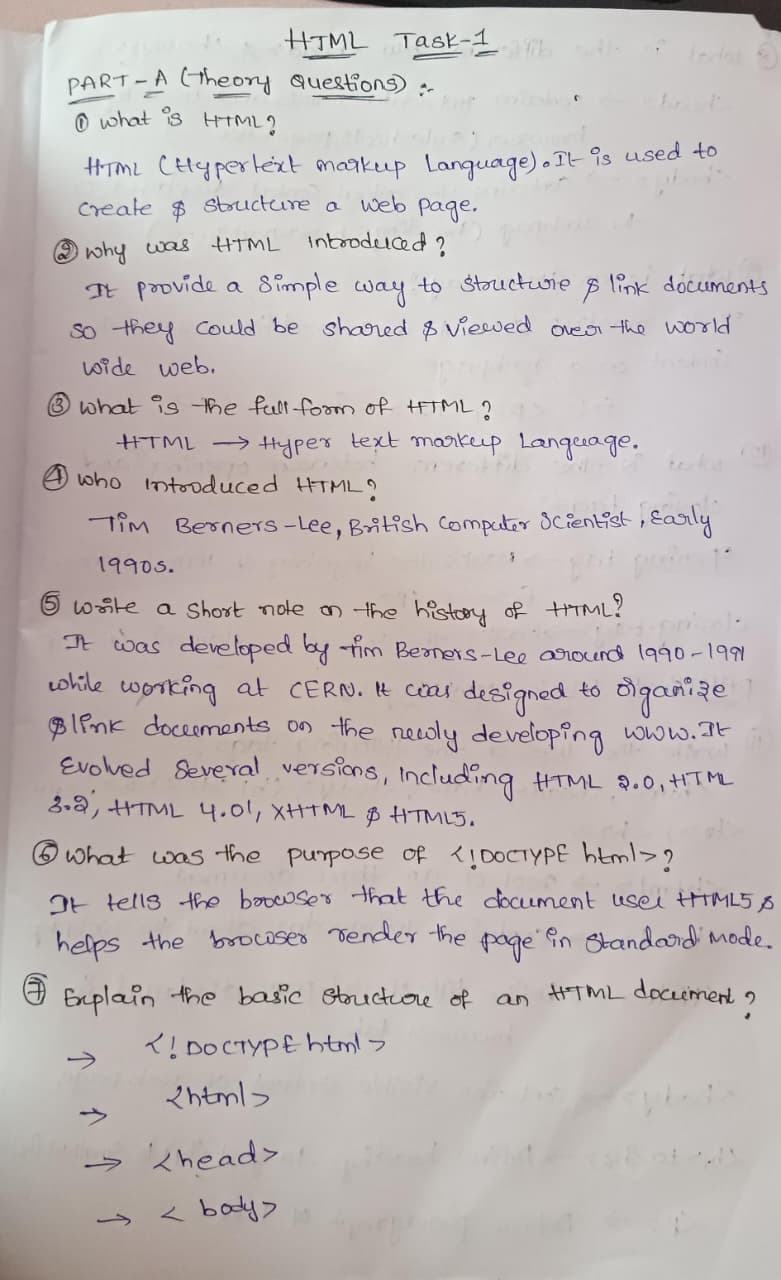 HTML Task-1
PART-A (Theory Questions) :-
① what is HTML?
HTML (Hypertext markup Language). It is used to
create & structure a web page.
② why was HTML introduced?
It provide a simple way to structure & link documents
so they could be shared & viewed over the world
wide web.
③ what is the full form of HTML?
HTML → Hyper text markup Language.
④ who introduced HTML?
Tim Berners-Lee, British Computer Scientist, Early
1990s.
⑤ write a short note on the history of HTML?
It was developed by Tim Berners-Lee around 1990-1991
while working at CERN. It was designed to organize
& link documents on the newly developing www. It
Evolved Several versions, Including HTML 2.0, HTML
3.2, HTML 4.01, XHTML & HTML5.
⑥ what was the purpose of <!DOCTYPE html>?
It tells the browser that the document uses HTML5 &
helps the browser render the page in Standard Mode.
⑦ Explain the basic structure of an HTML document?
→ <!DOCTYPE html>
→ <html>
→ <head>
→ <body>